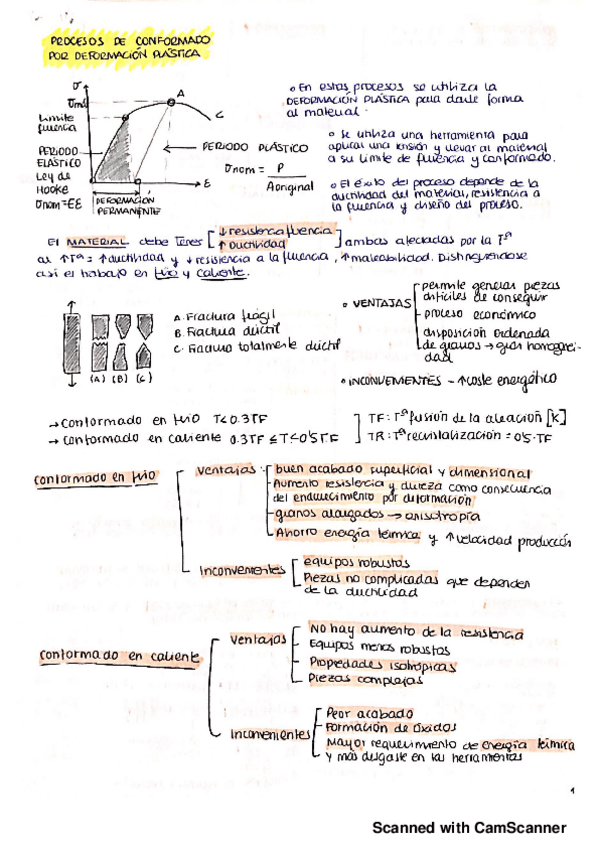 PROCESOS DE CONFORMADO
POR DEFORMACIÓN PLÁSTICA
σ
σm
A
Límite
fluencia
PERIODO
ELÁSTICO
Ley de
Hooke
σnom=EE
DEFORMACIÓN
PERMANENTE
E
← PERIODO PLÁSTICO
σnom = P
Aoriginal
◦ En estos procesos se utiliza la
DEFORMACIÓN PLÁSTICA para darle forma
al material.
◦ Se utiliza una herramienta para
aplicar una tensión y llevar al material
a su límite de fluencia y conformado.
◦ El éxito del proceso depende de la
ductilidad del material, resistencia a
la fluencia y diseño del proceso.
El MATERIAL debe tener [↓ resistencia fluencia
↑ ductilidad] ambas afectadas por la Tª
al ↑Tª = ↑ductilidad y ↓resistencia a la fluencia, ↑maleabilidad. Distinguiéndose
así el trabajo en frío y caliente.
(A) (B) (C)
A. Fractura frágil
B. Fractura dúctil
C. Fractura totalmente dúctil
◦ VENTAJAS
permite generar piezas
difíciles de conseguir
proceso económico
disposición ordenada
de granos → gran homogenei-
dad
◦ INCONVENIENTES - ↑coste energético
→ Conformado en frío T<0.3TF
→ Conformado en caliente 0.3TF ≤T<0'5TF
TF: Tª fusión de la aleación [K]
TR: Tª recristalización = 0'5·TF
Conformado en frío
Ventajas
buen acabado superficial y dimensional
Aumento resistencia y dureza como consecuencia
del endurecimiento por deformación
granos alargados → anisotropía
Ahorro energía térmica y ↑velocidad producción
Inconvenientes
equipos robustos
Piezas no complicadas que dependen
de la ductilidad
Conformado en caliente
Ventajas
No hay aumento de la resistencia
Equipos menos robustos
Propiedades isotrópicas
Piezas complejas
Inconvenientes
Peor acabado
Formación de óxidos
Mayor requerimiento de energía térmica
y más desgaste en las herramientas
1
Scanned with CamScanner